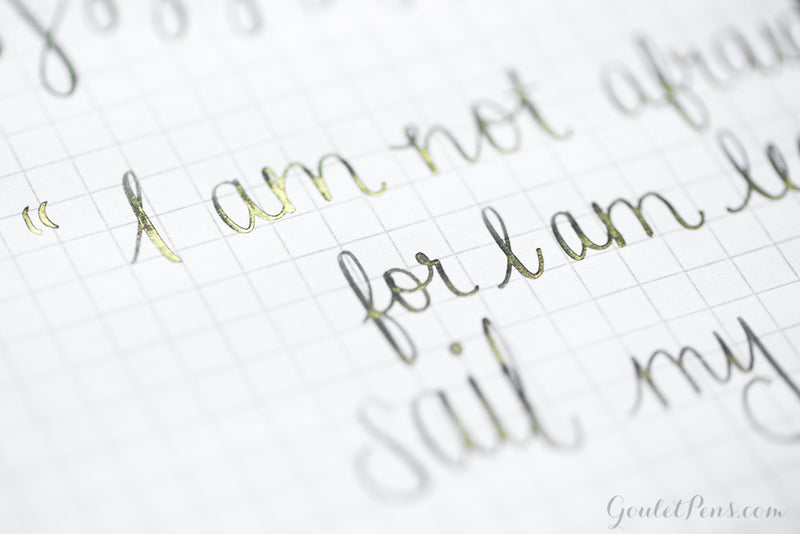 “ I am not afraid
for I am
sail my
GouletPens.com